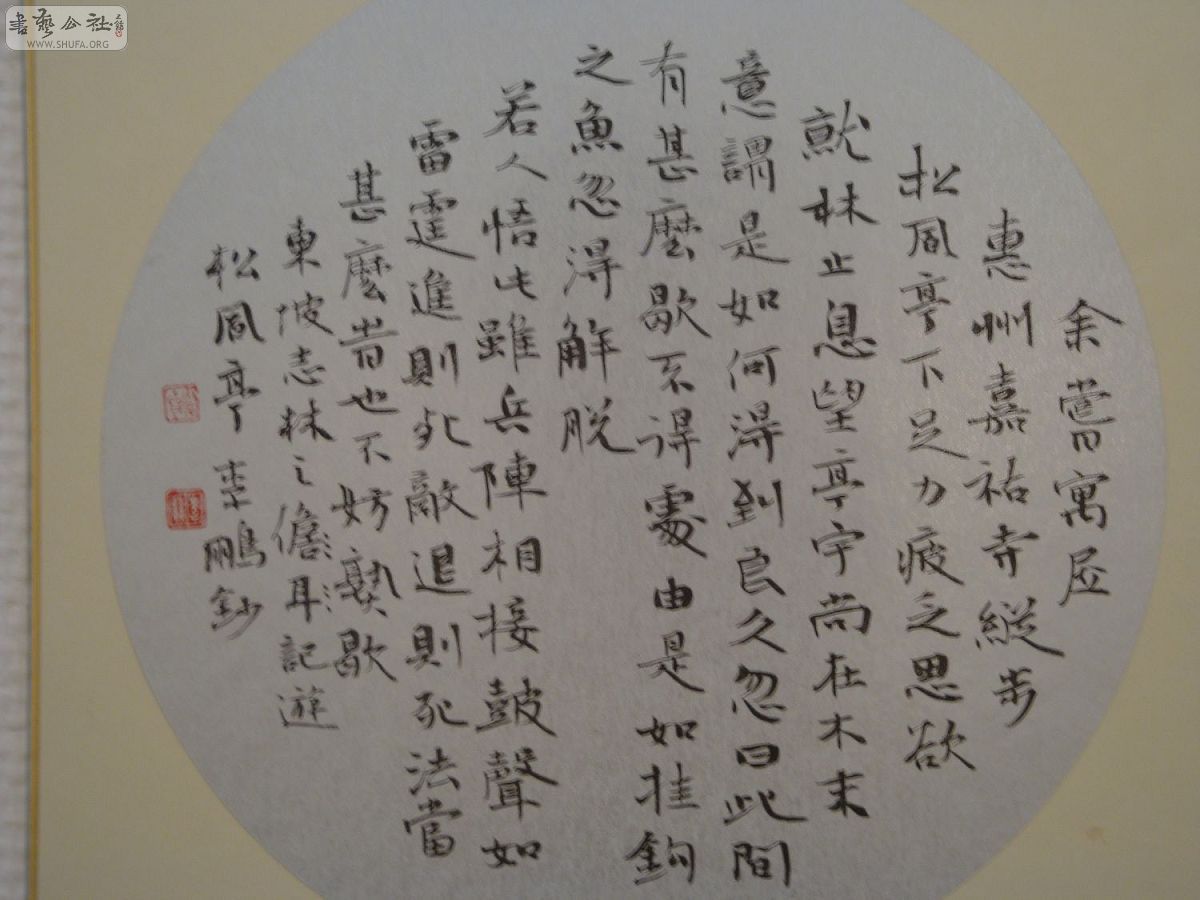 書藝公社
WWW.SHUFA.ORG
余嘗寓居
惠州嘉祐寺縱步
松風亭下足力疲乏思欲
就林止息望亭宇尚在木末
意謂是如何得到良久忽曰此間
有甚麼歇不得處由是如挂鉤
之魚忽得解脫
若人悟此雖兵陣相接鼓聲如
雷霆進則死敵退則死法當
甚麼旹也不妨熟歇
東坡志林之儋耳記遊
松風亭 李鵬鈔